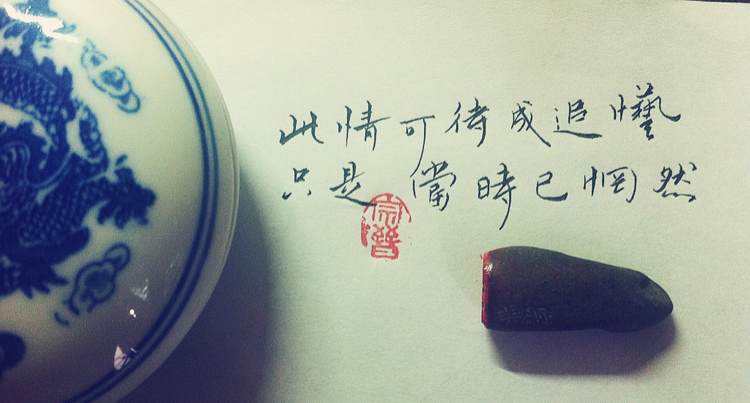 此情可待成追憶
只是儅時已惘然